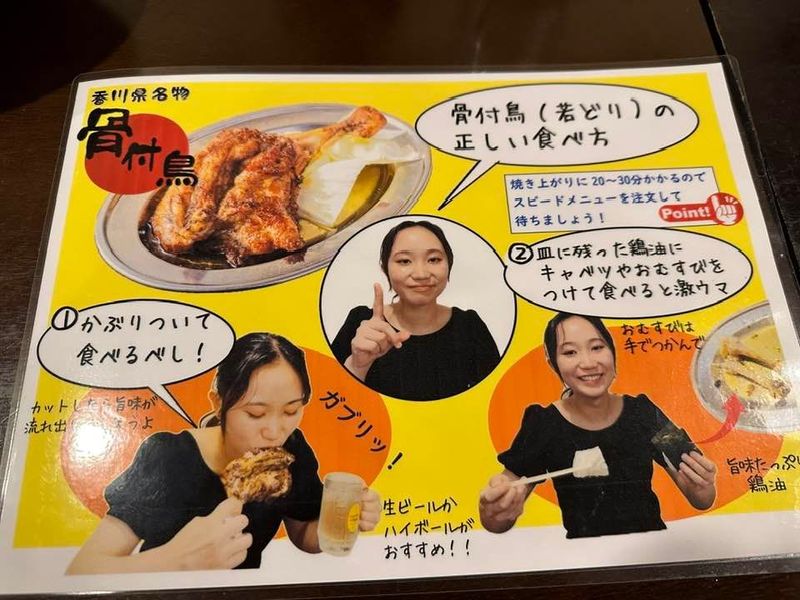 香川県名物
骨付鳥
骨付鳥（若どり）の
正しい食べ方
焼き上がりに20〜30分かかるので
スピードメニューを注文して
待ちましょう！
Point!
①かぶりついて
食べるべし！
カットしたら旨味が
流れ出
つよ
ガブリッ！
生ビールか
ハイボールが
おすすめ！！
②皿に残った鶏油に
キャベツやおむすびを
つけて食べると激ウマ
おむすびは
手でつかんで
旨味たっぷり
鶏油